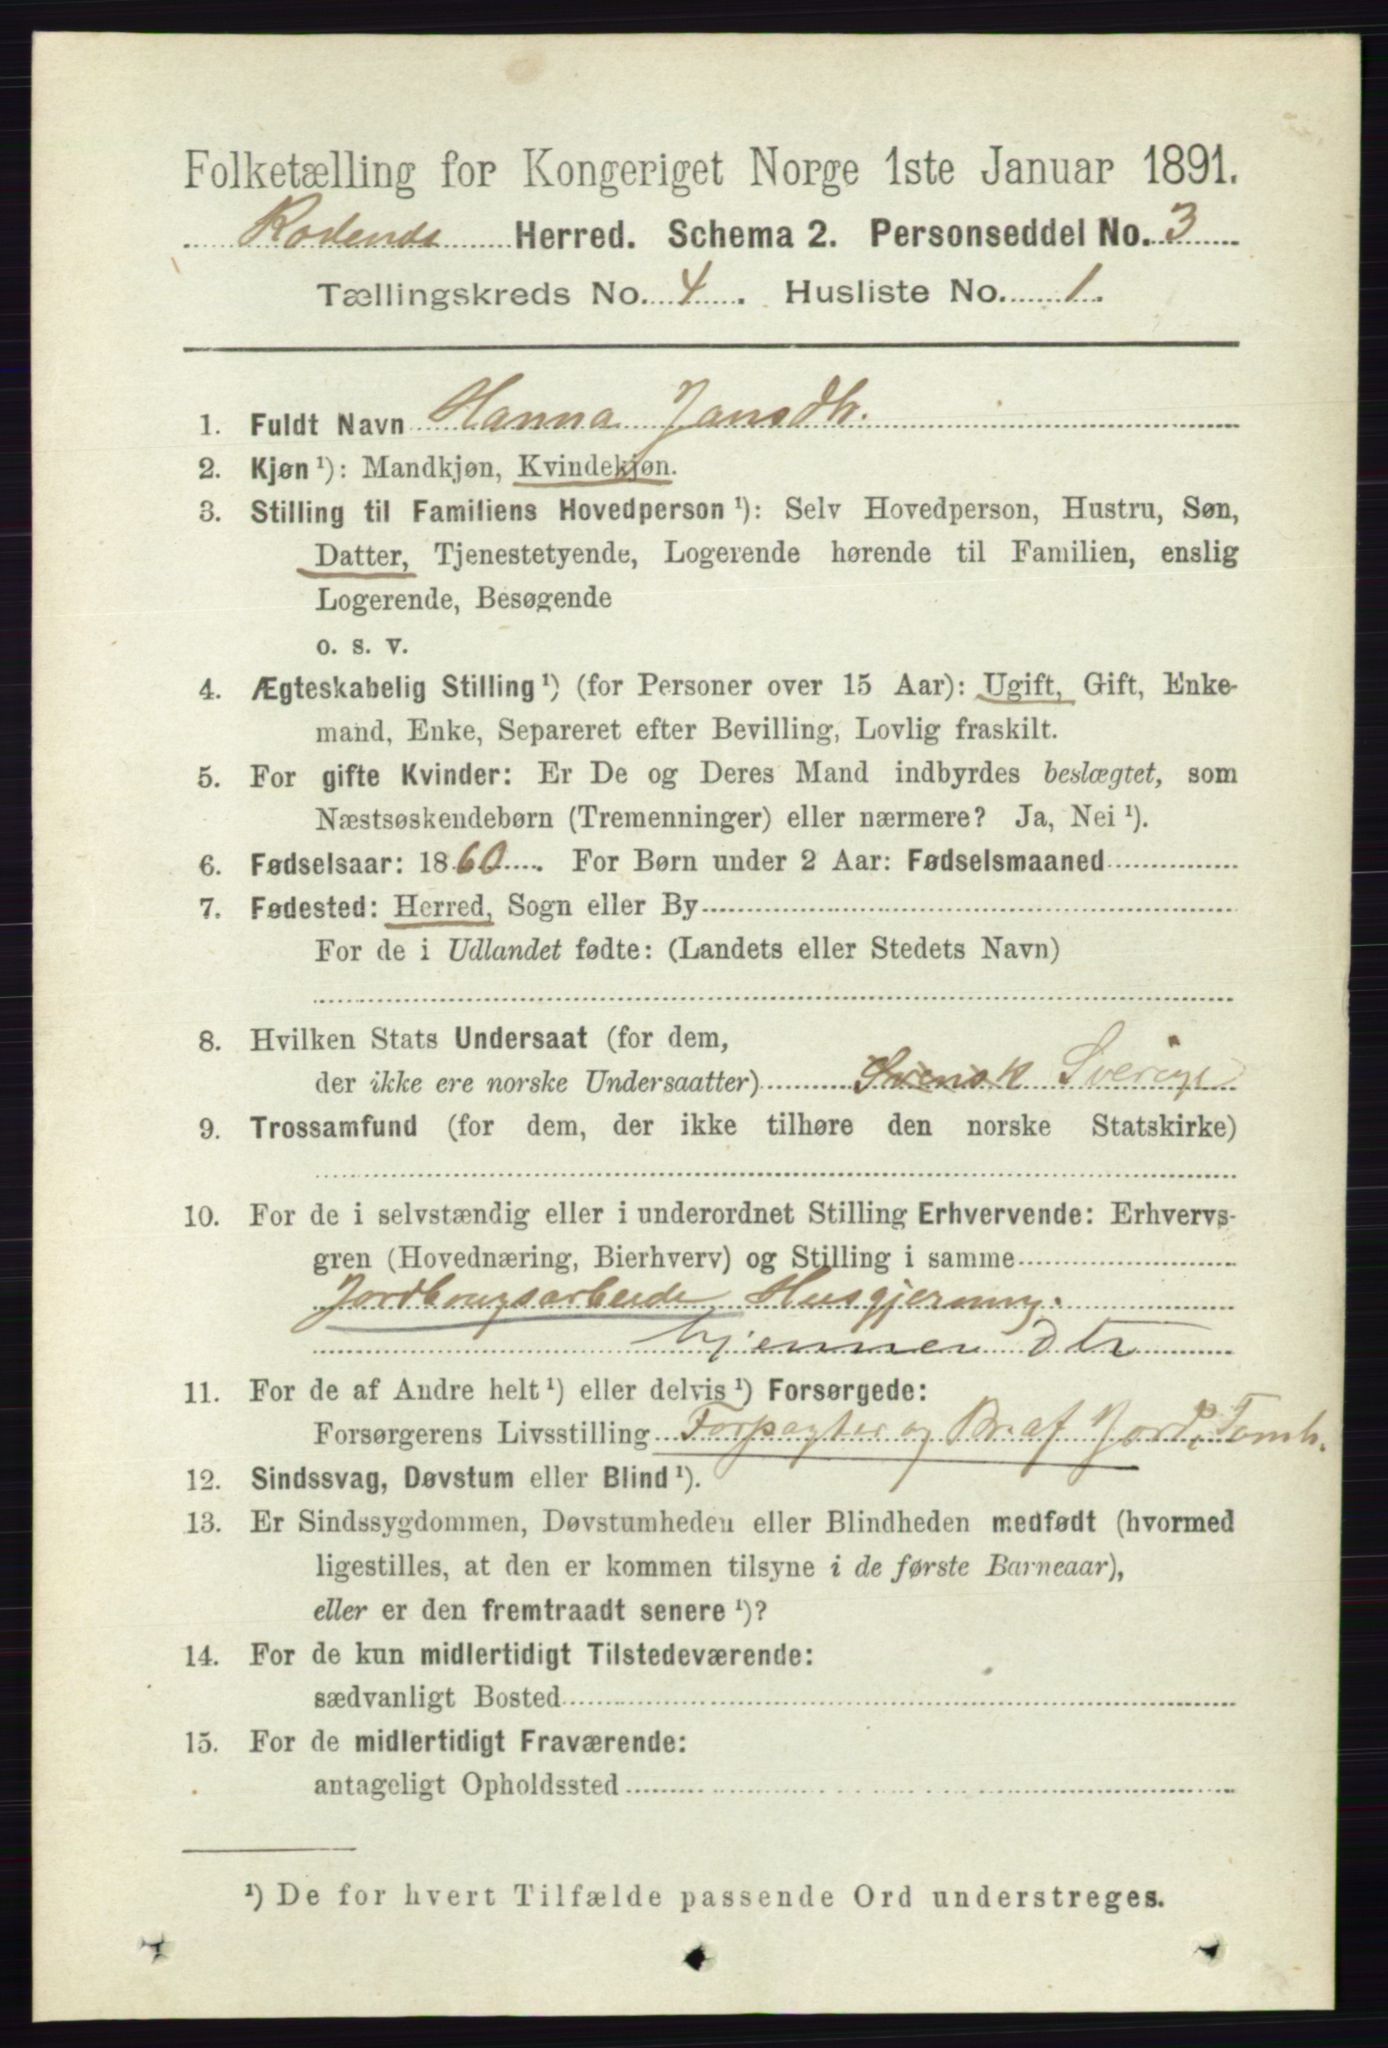 Folketælling for Kongeriget Norge 1ste Januar 1891.
Rødenes Herred. Schema 2. Personseddel No. 3
Tællingskreds No. 4. Husliste No. 1.
1. Fuldt Navn Hanna Jansdtr.
2. Kjøn ¹): Mandkjøn, Kvindekjøn.
3. Stilling til Familiens Hovedperson ¹): Selv Hovedperson, Hustru, Søn,
Datter, Tjenestetyende, Logerende hørende til Familien, enslig
Logerende, Besøgende
o. s. v.
4. Ægteskabelig Stilling ¹) (for Personer over 15 Aar): Ugift, Gift, Enke-
mand, Enke, Separeret efter Bevilling, Lovlig fraskilt.
5. For gifte Kvinder: Er De og Deres Mand indbyrdes beslægtet, som
Næstsøskendebørn (Tremenninger) eller nærmere? Ja, Nei ¹).
6. Fødselsaar: 1860. For Børn under 2 Aar: Fødselsmaaned
7. Fødested: Herred, Sogn eller By
For de i Udlandet fødte: (Landets eller Stedets Navn)
8. Hvilken Stats Undersaat (for dem,
der ikke ere norske Undersaatter) Svensk Sverige
9. Trossamfund (for dem, der ikke tilhøre den norske Statskirke)
10. For de i selvstændig eller i underordnet Stilling Erhvervende: Erhvervs-
gren (Hovednæring, Bierhverv) og Stilling i samme
Jordbrugsarbeide Husgjerning.
hjemmev Dtr
11. For de af Andre helt ¹) eller delvis ¹) Forsørgede:
Forsørgerens Livsstilling Forpagter og Br. af Jord, Tomt.
12. Sindssvag, Døvstum eller Blind ¹).
13. Er Sindssygdommen, Døvstumheden eller Blindheden medfødt (hvormed
ligestilles, at den er kommen tilsyne i de første Barneaar),
eller er den fremtraadt senere ¹)?
14. For de kun midlertidigt Tilstedeværende:
sædvanligt Bosted
15. For de midlertidigt Fraværende:
antageligt Opholdssted
¹) De for hvert Tilfælde passende Ord understreges.